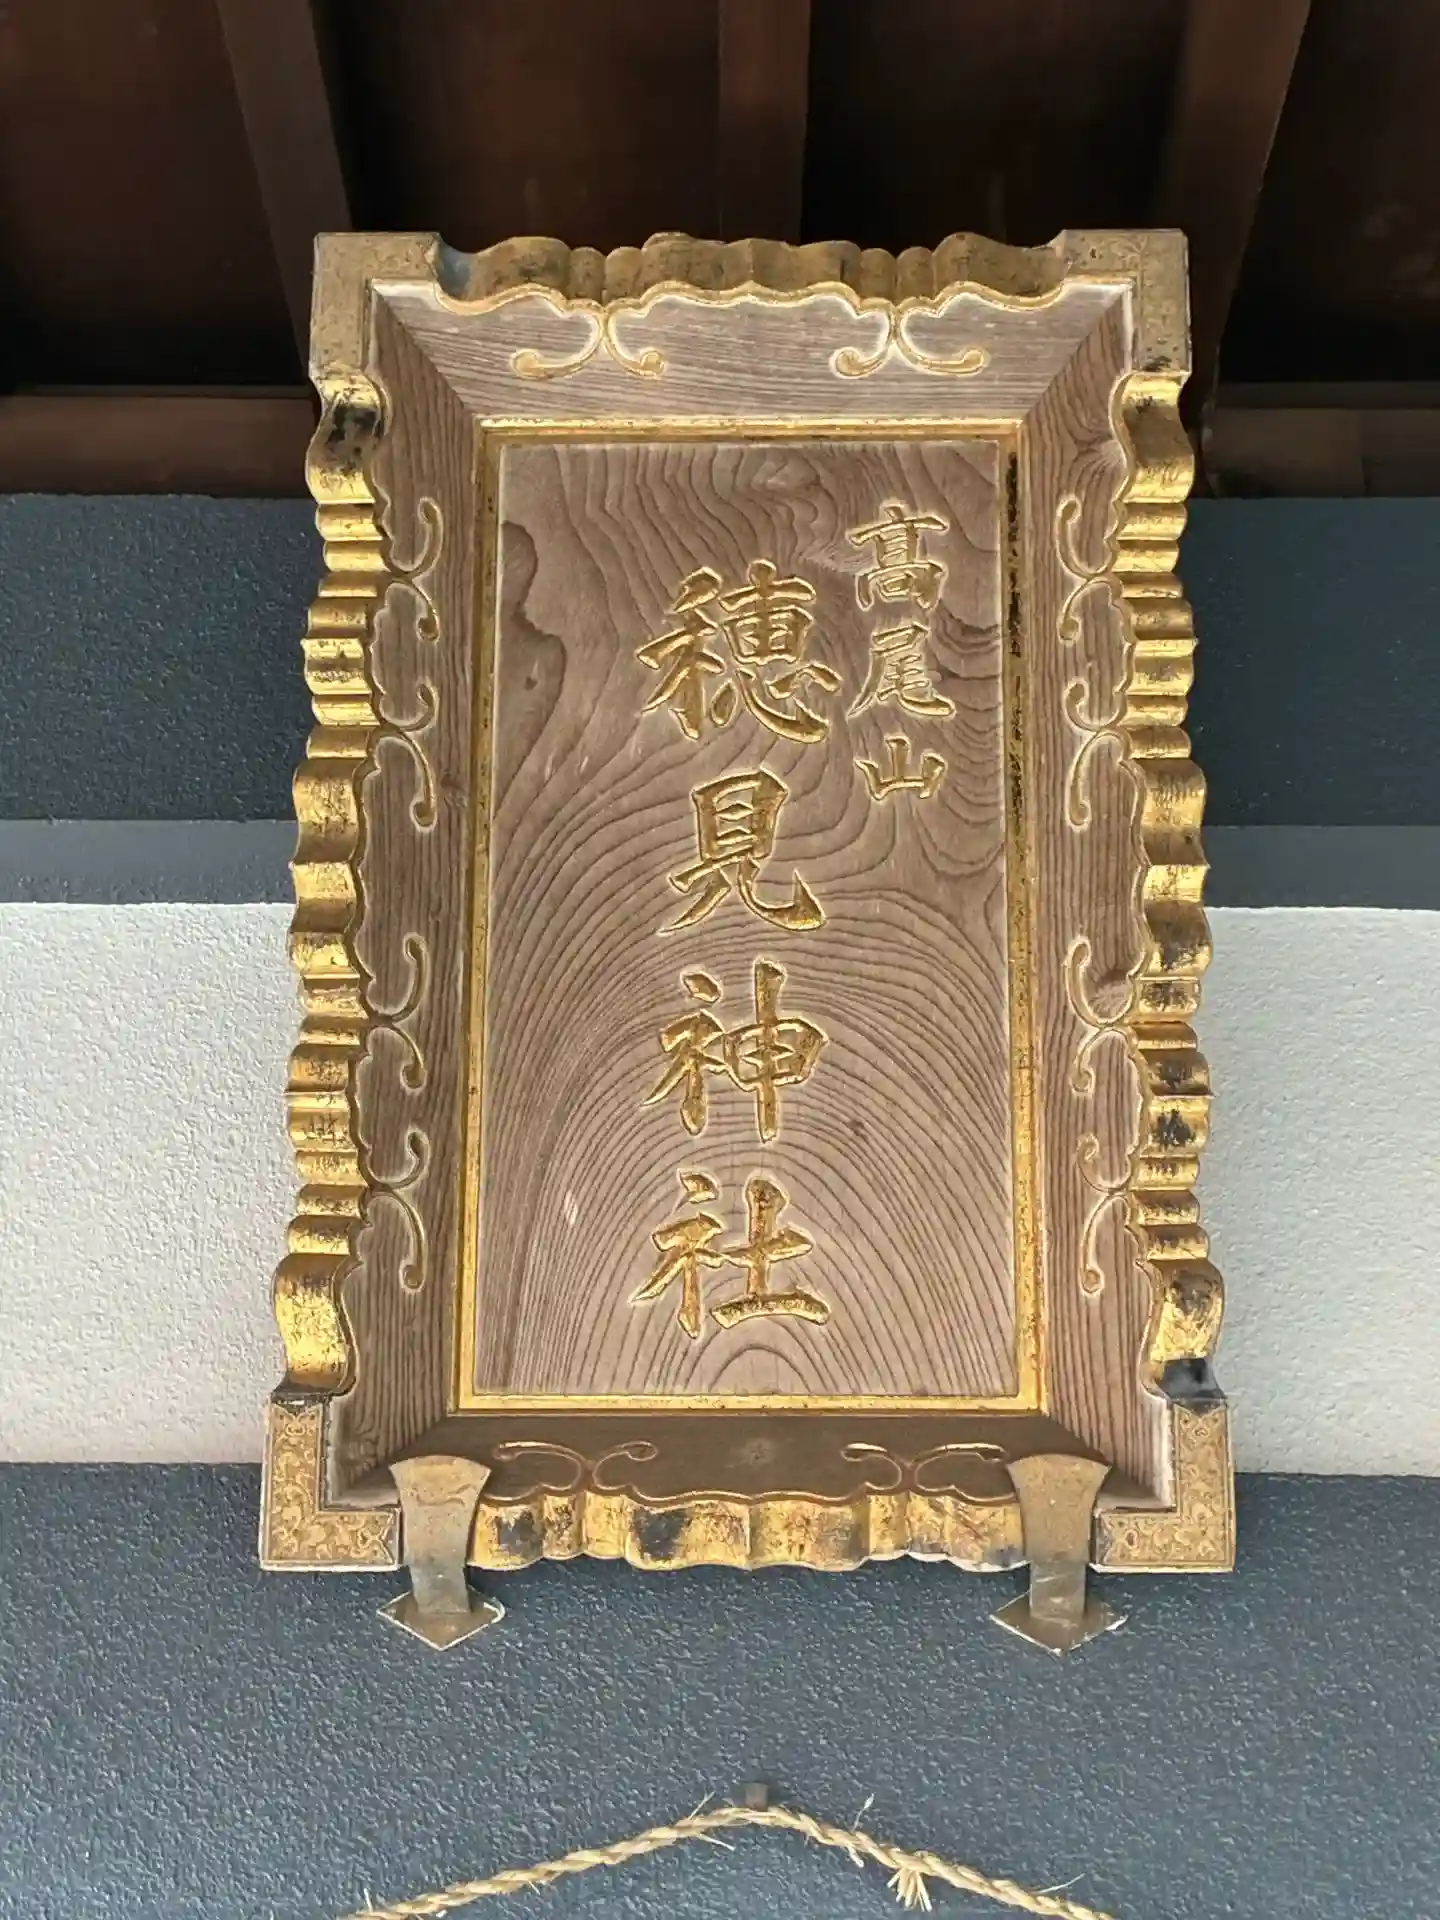 髙尾山
穂見神社